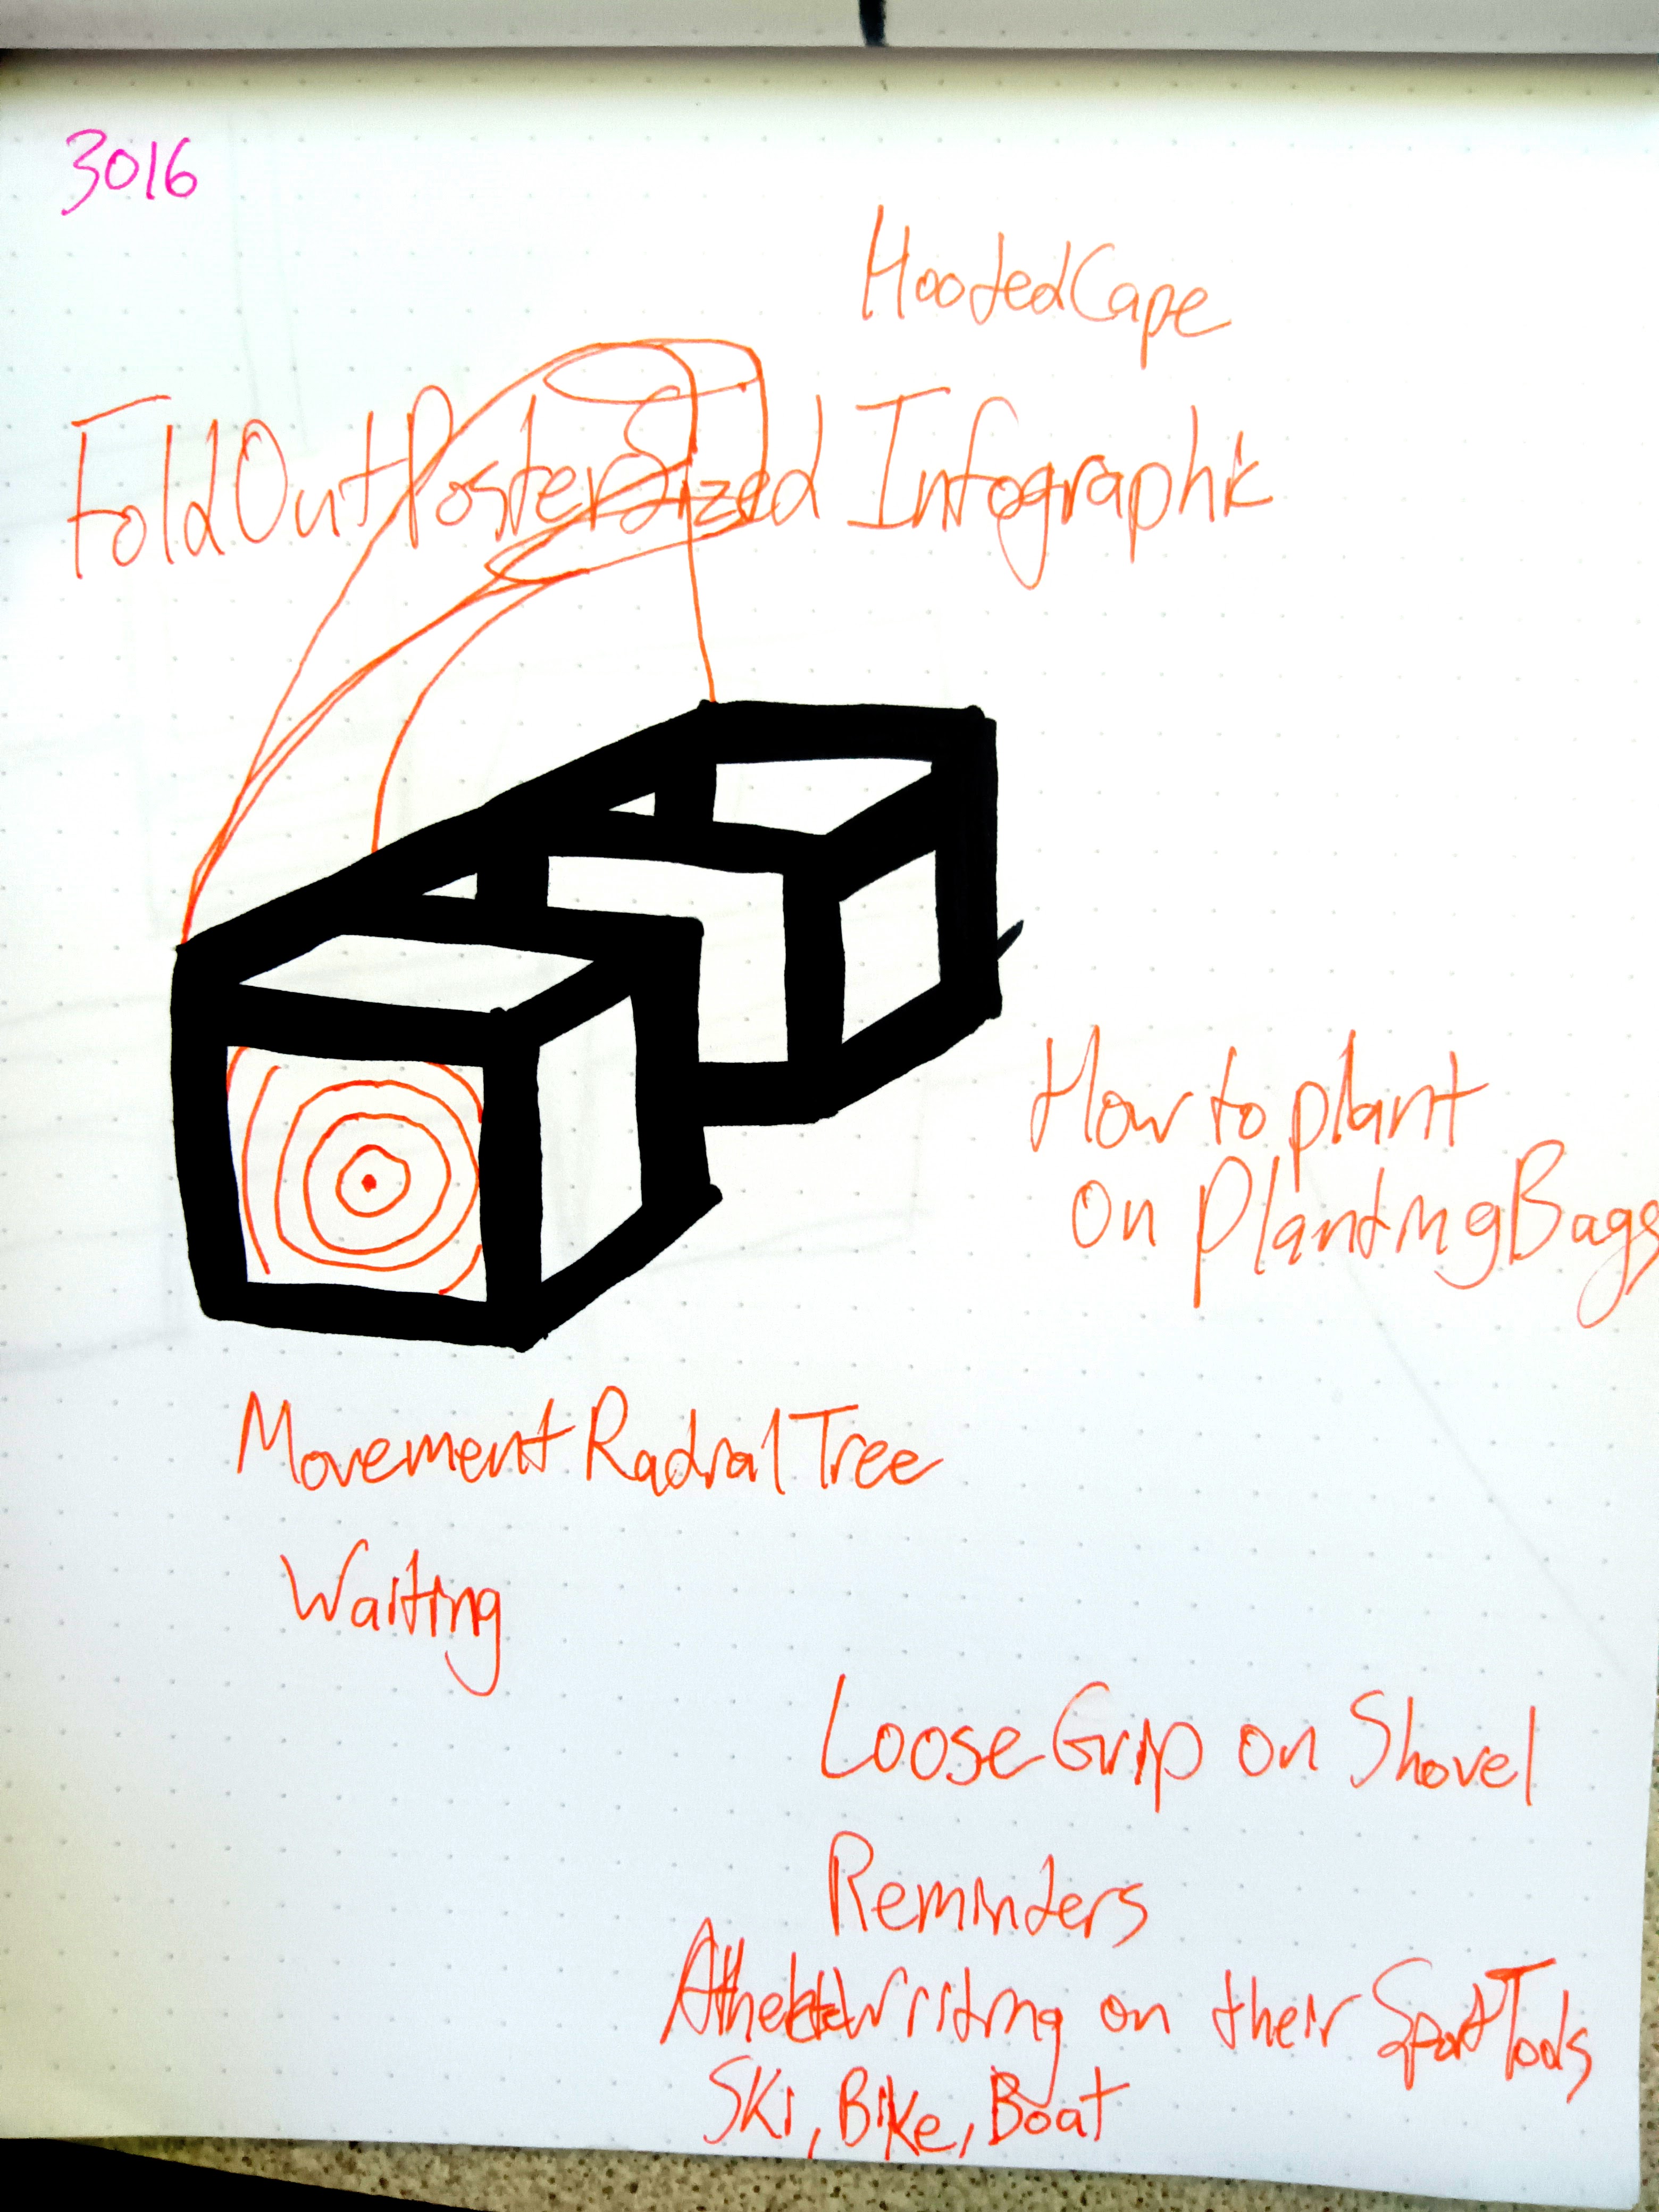 3016
HoodedCape
FoldOutPosterSized Infographic
How to plant
on PlantingBags
MovementRadialTree
Waiting
LooseGrip on Shovel
Reminders
Writing on their SportTools
Ski, Bike, Boat